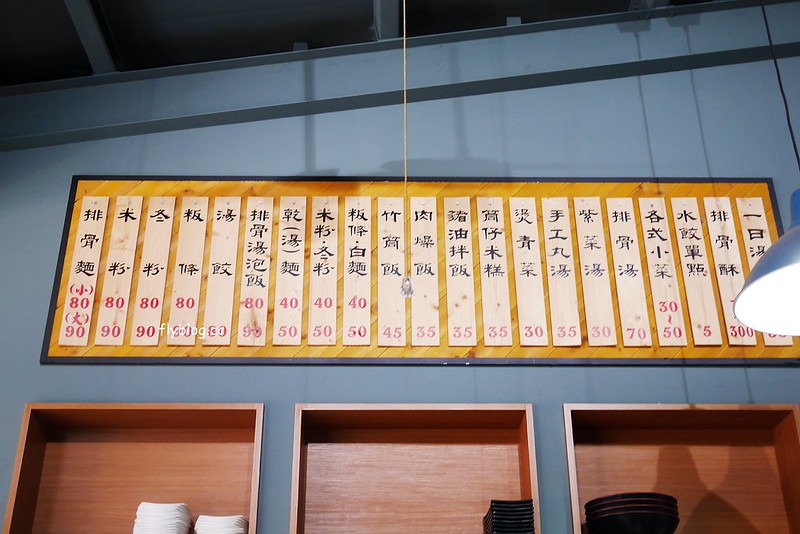 排骨麵 (小) 80 (大) 90
米粉 80 90
冬粉 80 90
粄條 80
湯餃
排骨湯泡飯 80 90
乾(湯)麵 40 50
米粉·冬粉 40 50
粄條·白麵 40 50
竹筒飯 45
肉燥飯 35
豬油拌飯 35
筒仔米糕 35
燙青菜 30
手工丸湯 35
紫菜湯 30
排骨湯 70
各式小菜 30~50
水餃單點 5
排骨酥 300
一日湯